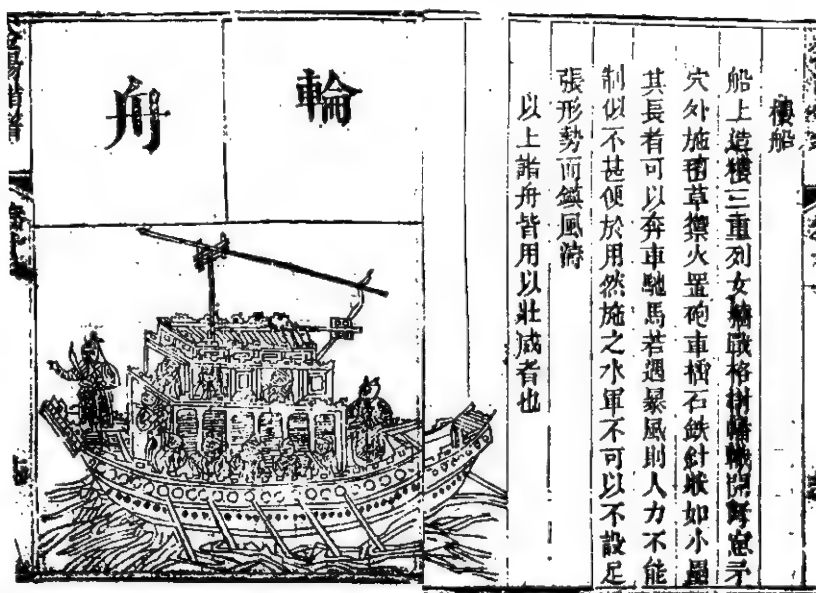 樓船
船上造樓三重列女牆戰格樹幡幟開弩窓矛
穴外施氊革禦火置砲車檑石鉄針狀如小壘
其長者可以奔車馳馬若遇暴風則人力不能
制似不甚便於用然施之水軍不可以不設足
張形勢而鎮風濤
以上諸舟皆用以壯威者也
輪
舟